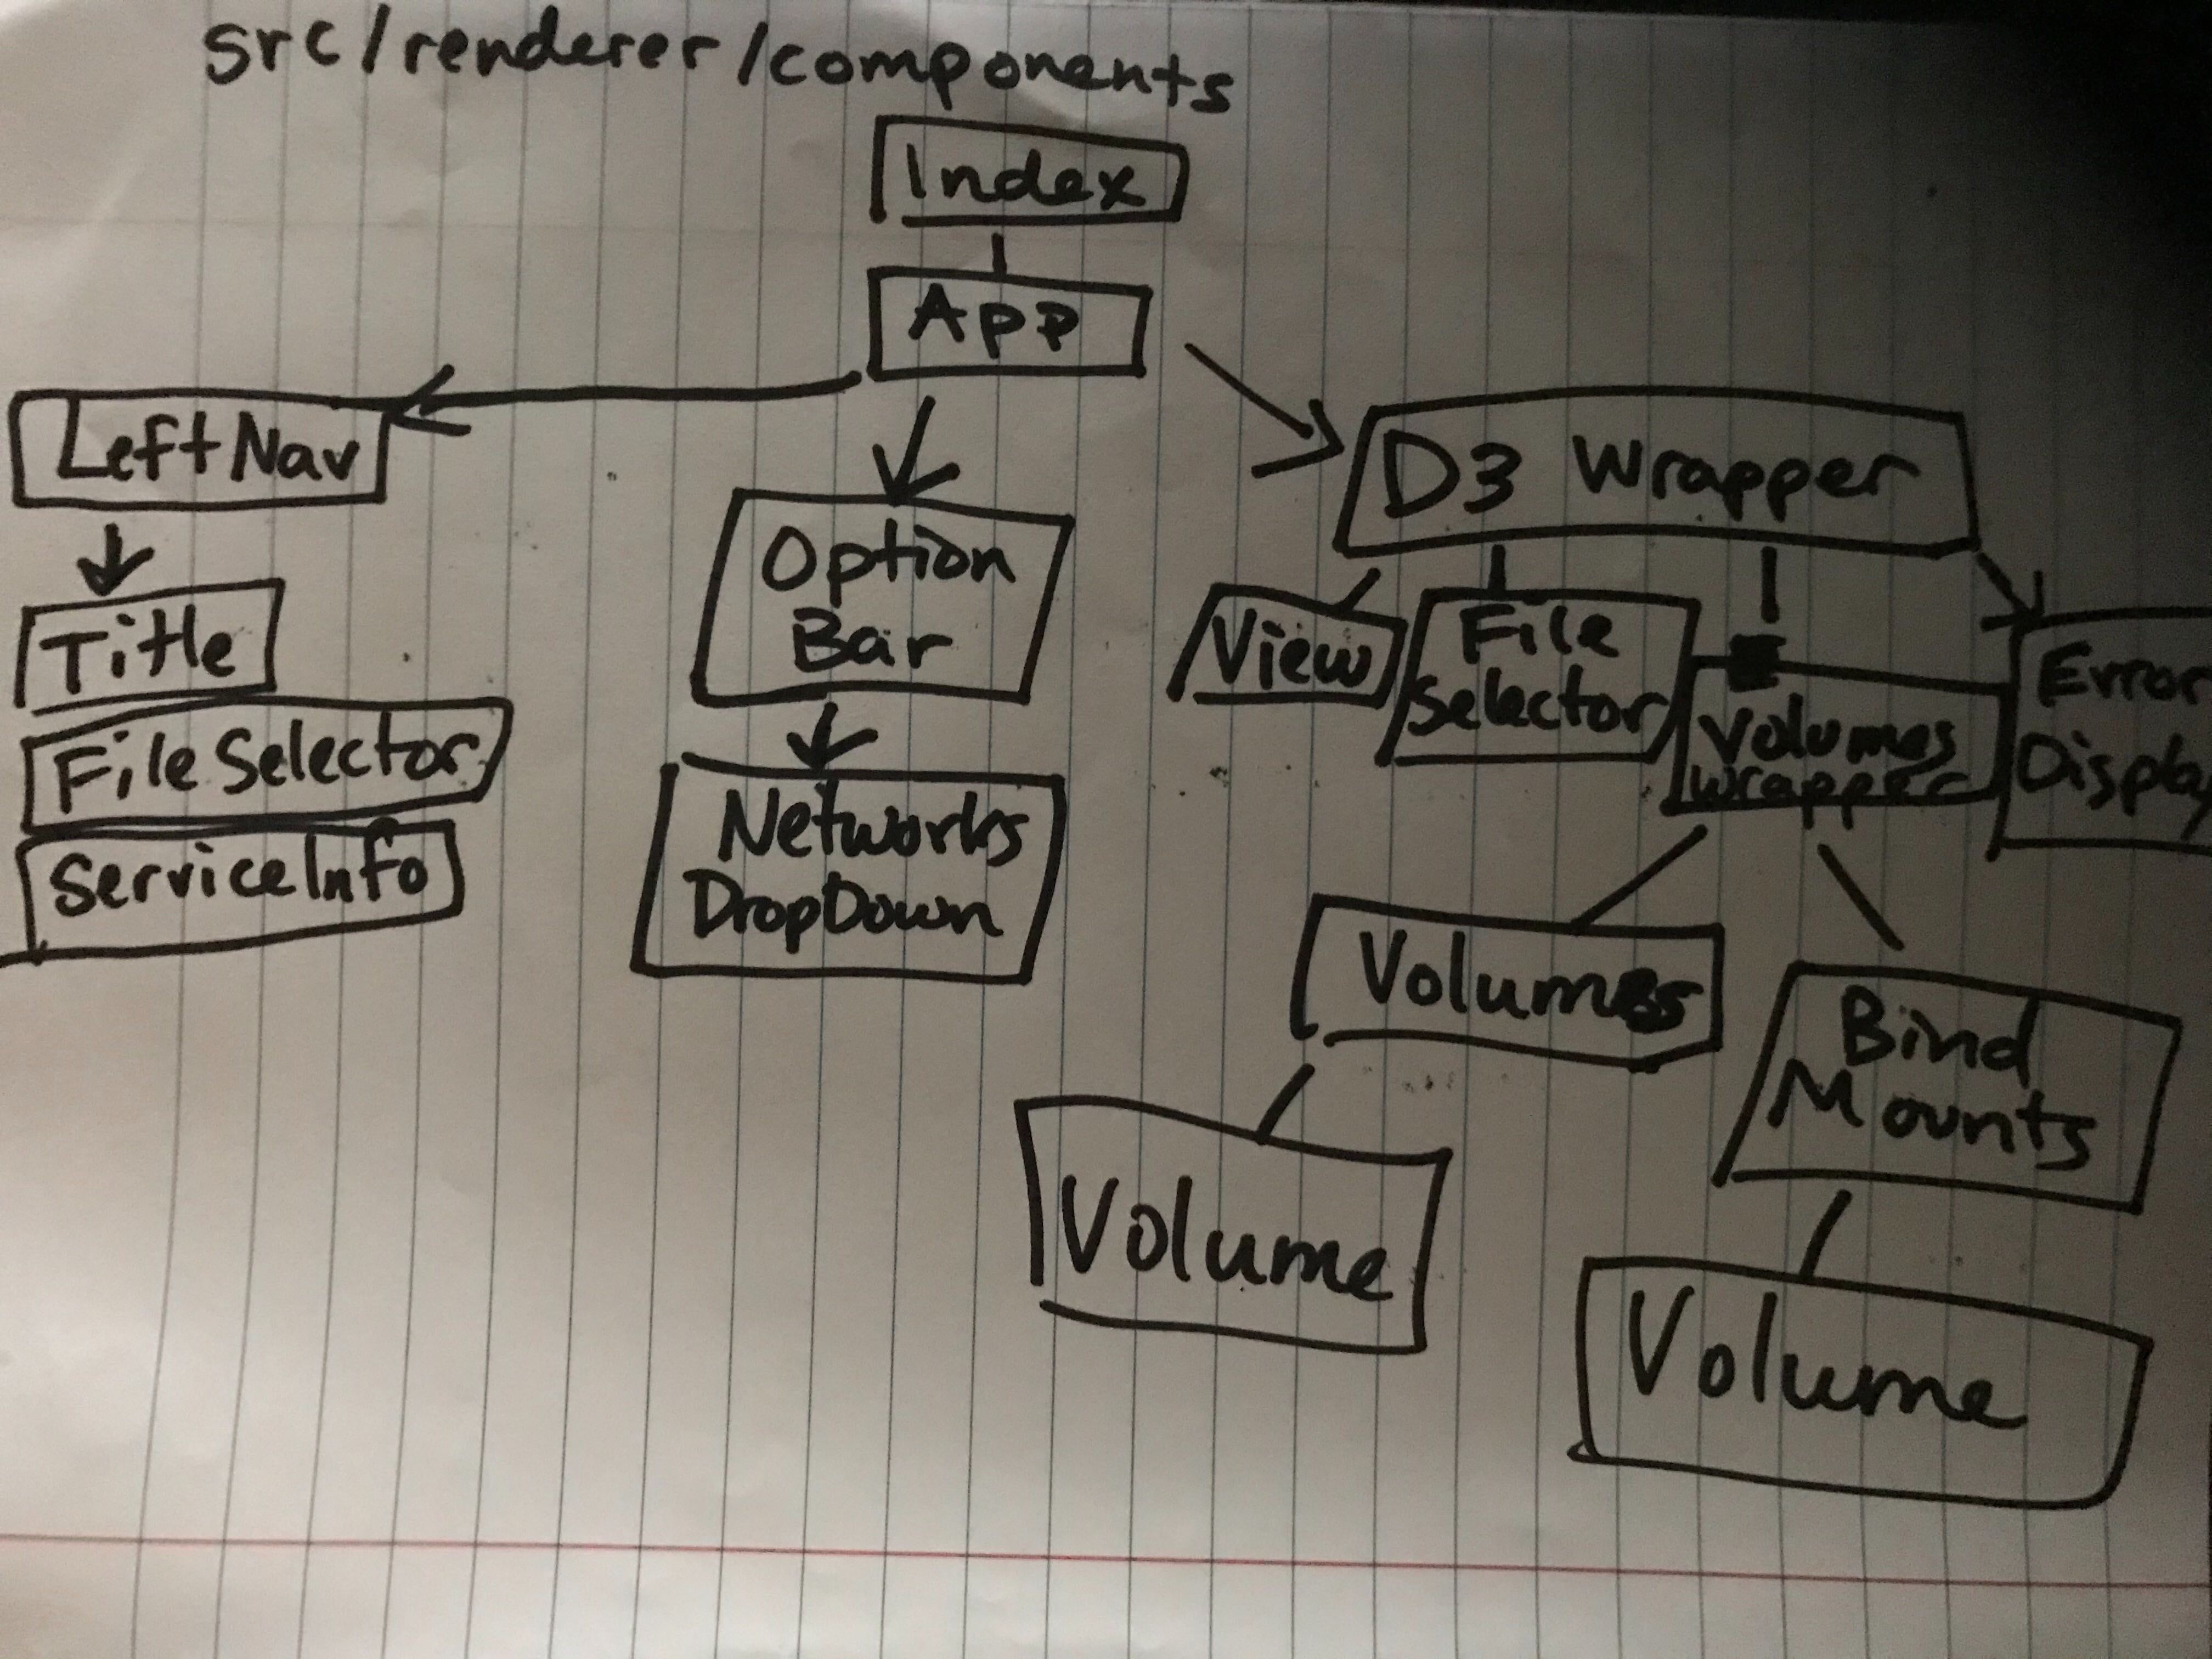 src/renderer/components
Index
App
Left Nav
Title
File Selector
Service Info
Option
Bar
Networks
DropDown
D3 Wrapper
View
File
Selector
Volumes
Wrapper
Error
Display
Volumes
Volume
Bind
Mounts
Volume